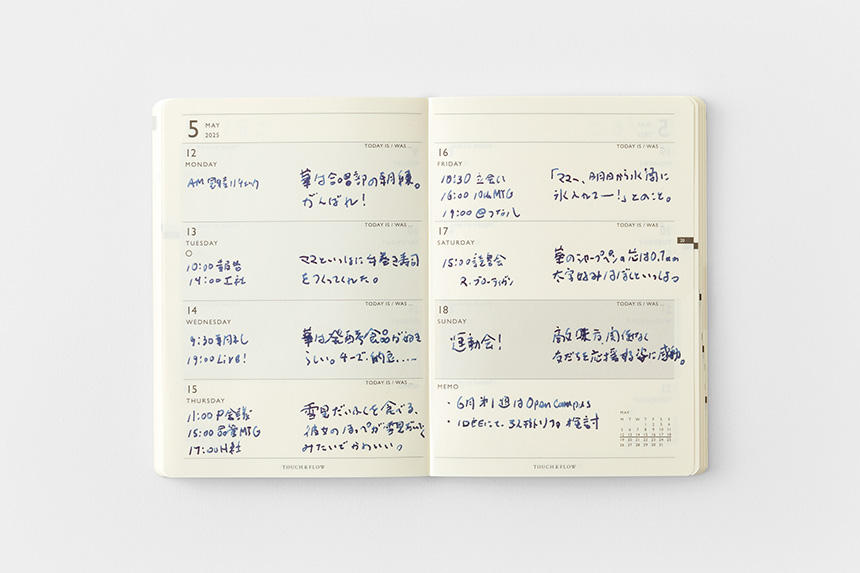 5 MAY
2025
TODAY IS / WAS ...
12
MONDAY
AM
華は合唱部の朝練。
がんばれ!
TODAY IS / WAS ...
13
TUESDAY
10:00 報告
14:00 工社
ママといっしょに手巻き寿司
をつくってくれた。
TODAY IS / WAS ...
14
WEDNESDAY
9:30
19:00 Live!
華は発酵食品が好き
らしい。チーズ、納豆.....
TODAY IS / WAS ...
15
THURSDAY
11:00 P会議
15:00 品管MTG
17:00 H社
雪見だいふくを食べる、
彼女のほっぺが雪見だいふく
みたいでかわいい。
TOUCH & FLOW
TODAY IS / WAS ...
16
FRIDAY
10:30 立会い
16:00 MTG
19:00 @つなし
「ママー、明日から水筒に
氷入れてー!」とのこと。
TODAY IS / WAS ...
17
SATURDAY
15:00 読書会
R.ブローティガン
華のシャープペンの芯は0.7mm
太字好みはぼくといっしょ
TODAY IS / WAS ...
18
SUNDAY
運動会!
敵味方関係なく
友だちを応援する姿に感動。
MEMO
・6月第1週はOpen Campus
・IDÉEにて、ストリフォ 検討
MAY
M T W T F S S
1 2 3 4
5 6 7 8 9 10 11
12 13 14 15 16 17 18
19 20 21 22 23 24 25
26 27 28 29 30 31
TOUCH & FLOW
20